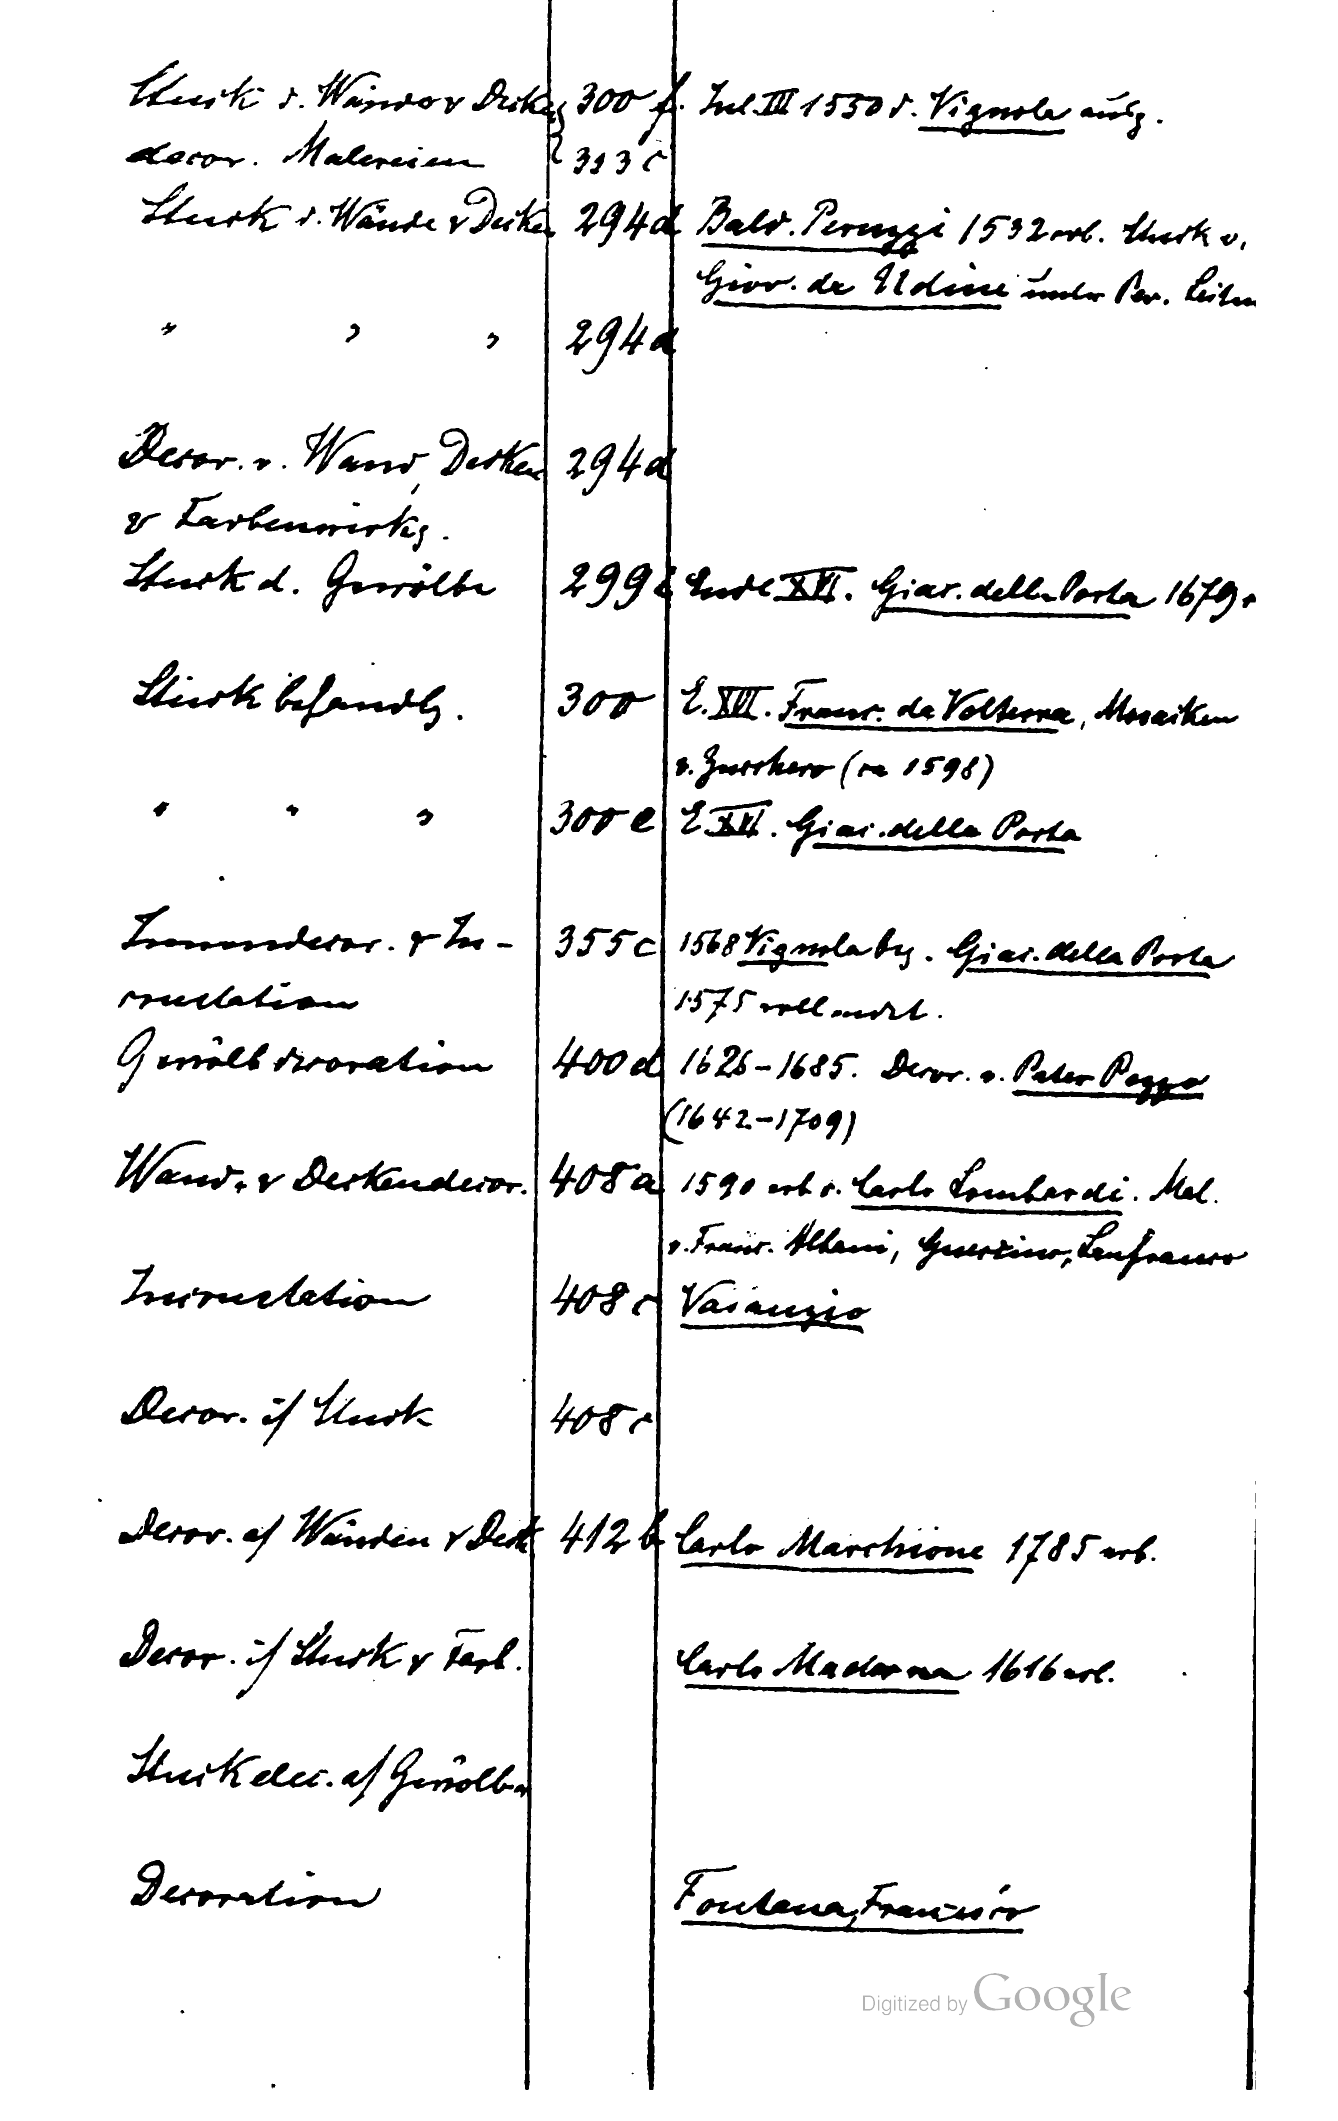 Stuck d. Wände & Decken 300 f. Jul. III 1550 d. Vignola ausg.
decor. Malereien 393 c
Stuck d. Wände & Decken 294d Bald. Peruzzi 1532 erb. Stuck v.
Giov. da Udine unter Per. Leitu
" " " 294d
Decor. v. Wand, Decken 294d
& Farbenwirkg.
Stuck d. Gewölbe 299 Ende XVI. Giac. della Porta 1679
Stuckbehandlg. 300 E. XVI. Franc. da Volterra, Mosaiken
v. Zucchero (ca 1598)
" " " 300 e E XVI. Giac. della Porta
Innendecor. & In- 355c 1568 Vignola beg. Giac. della Porta
crustation 1575 vollendet.
Gewölbdecoration 400d 1626-1685. Decor. v. Pater Pozzo
(1642-1709)
Wand- & Deckendecor. 408a 1590 erb v. Carlo Lombardi. Mal.
v. Franc. Albani, Guercino, Lanfranco
Incrustation 408 c Vasanzio
Decor. i/ Stuck 408 c
Decor. a/ Wänden & Deck 412 b Carlo Marchione 1785 erb.
Decor. i/ Stuck & Farb. Carlo Maderna 1616 erb.
Stuckdec. a/ Gewölben
Decoration Fontana, Francesco
Digitized by Google